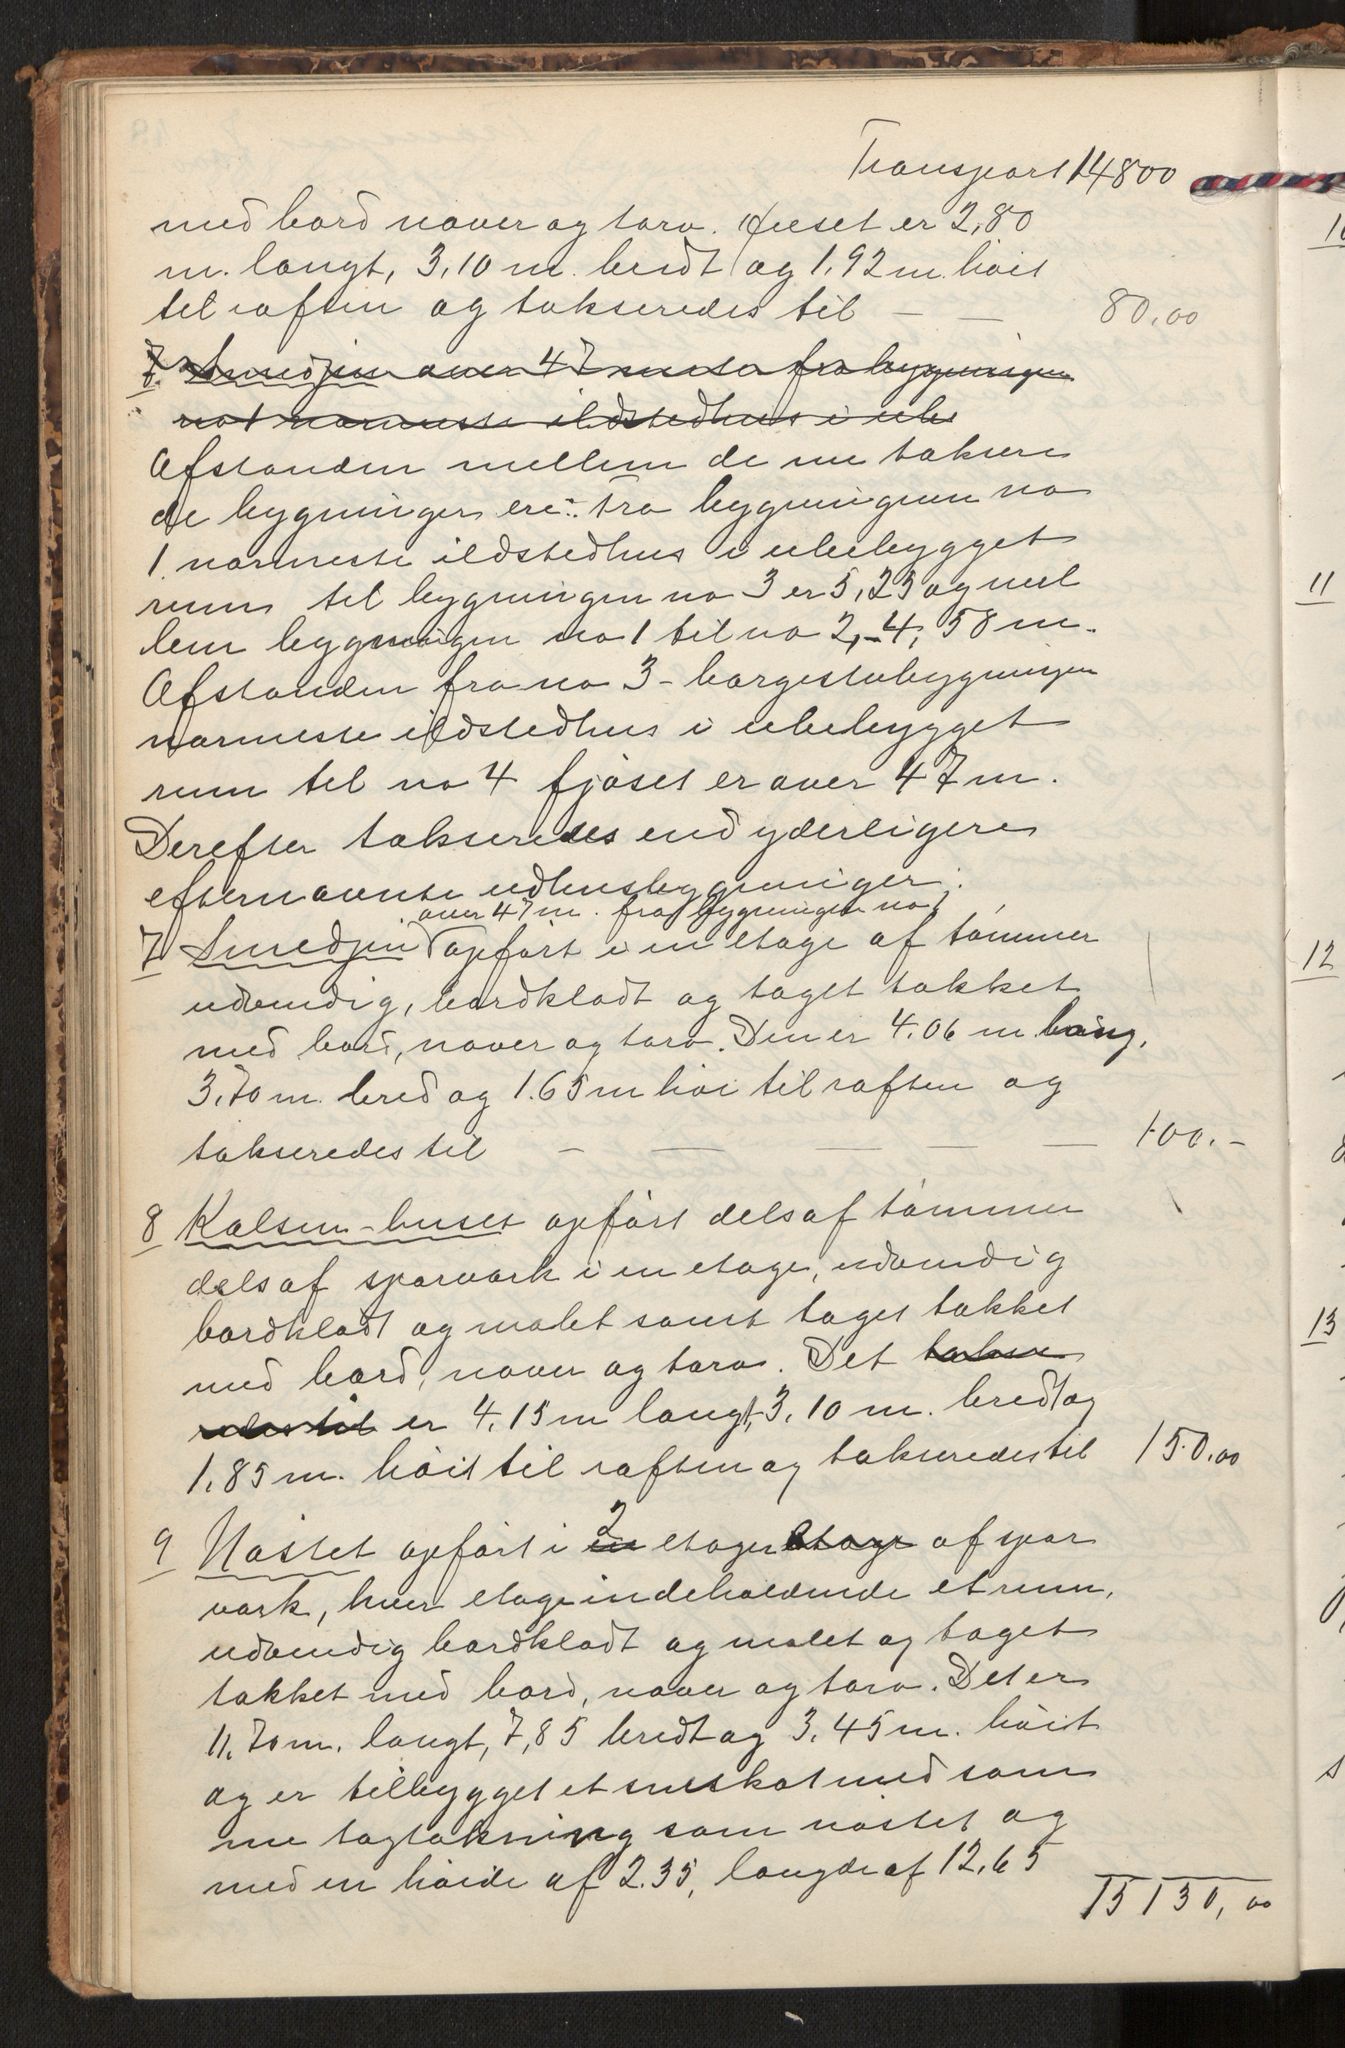 Transport 14800
med bord næver og torv. Huset er 2,80
m. langt, 3,10 m. bredt og 1,92 m. høit
til raften og takseredes til — — 80,00
7. Smedjen over 47 meter fra bygningen
no 1 nærmeste ildstedhus i ube
Afstanden mellem de nu taksere
de bygninger er:- Fra bygningen no
1 nærmeste ildstedhus i ubebygget
rum til bygningen no 3 er 5,25 og mel
lem bygningen no 1 til no 2, - 4,58 m.
Afstanden fra no 3 - borgestubygningen
nærmeste ildstedhus i ubebygget
rum til no 4 fjøset er over 47 m.
Derefter takseredes end yderligere
efternævnte udhusbygninger:
over 47 m. fra bygningen no 1
7 Smedjen opført i en etage af tømmer
udvendig, bordklædt og taget tækket
med bord, næver og torv. Den er 4.06 m lang,
3,70 m. bred og 1.65 m høi til raften og
takseredes til — — — — — 100.-
8 Kalsen-huset opført dels af tømmer
dels af sparværk i en etage, udvendig
bordklædt og malet samt taget tækket
med bord, næver og torv. Det takse
redes til er 4,15 m langt, 3,10 m. bredt og
1,85 m. høit til raften og takseredes til 150.00
9 Nøstet opført i en 2 etager etage af spar
værk, hver etage indeholdende et rum,
udvendig bordklædt og malet og taget
tækket med bord, næver og torv. Det er
11,70 m. langt, 7,85 bredt og 3.45 m. høit
og er tilbygget et sneskot med sam
me tagtækning som nøstet og
med en høide af 2.35, længde af 12,65
15130,00
10
11
12
13